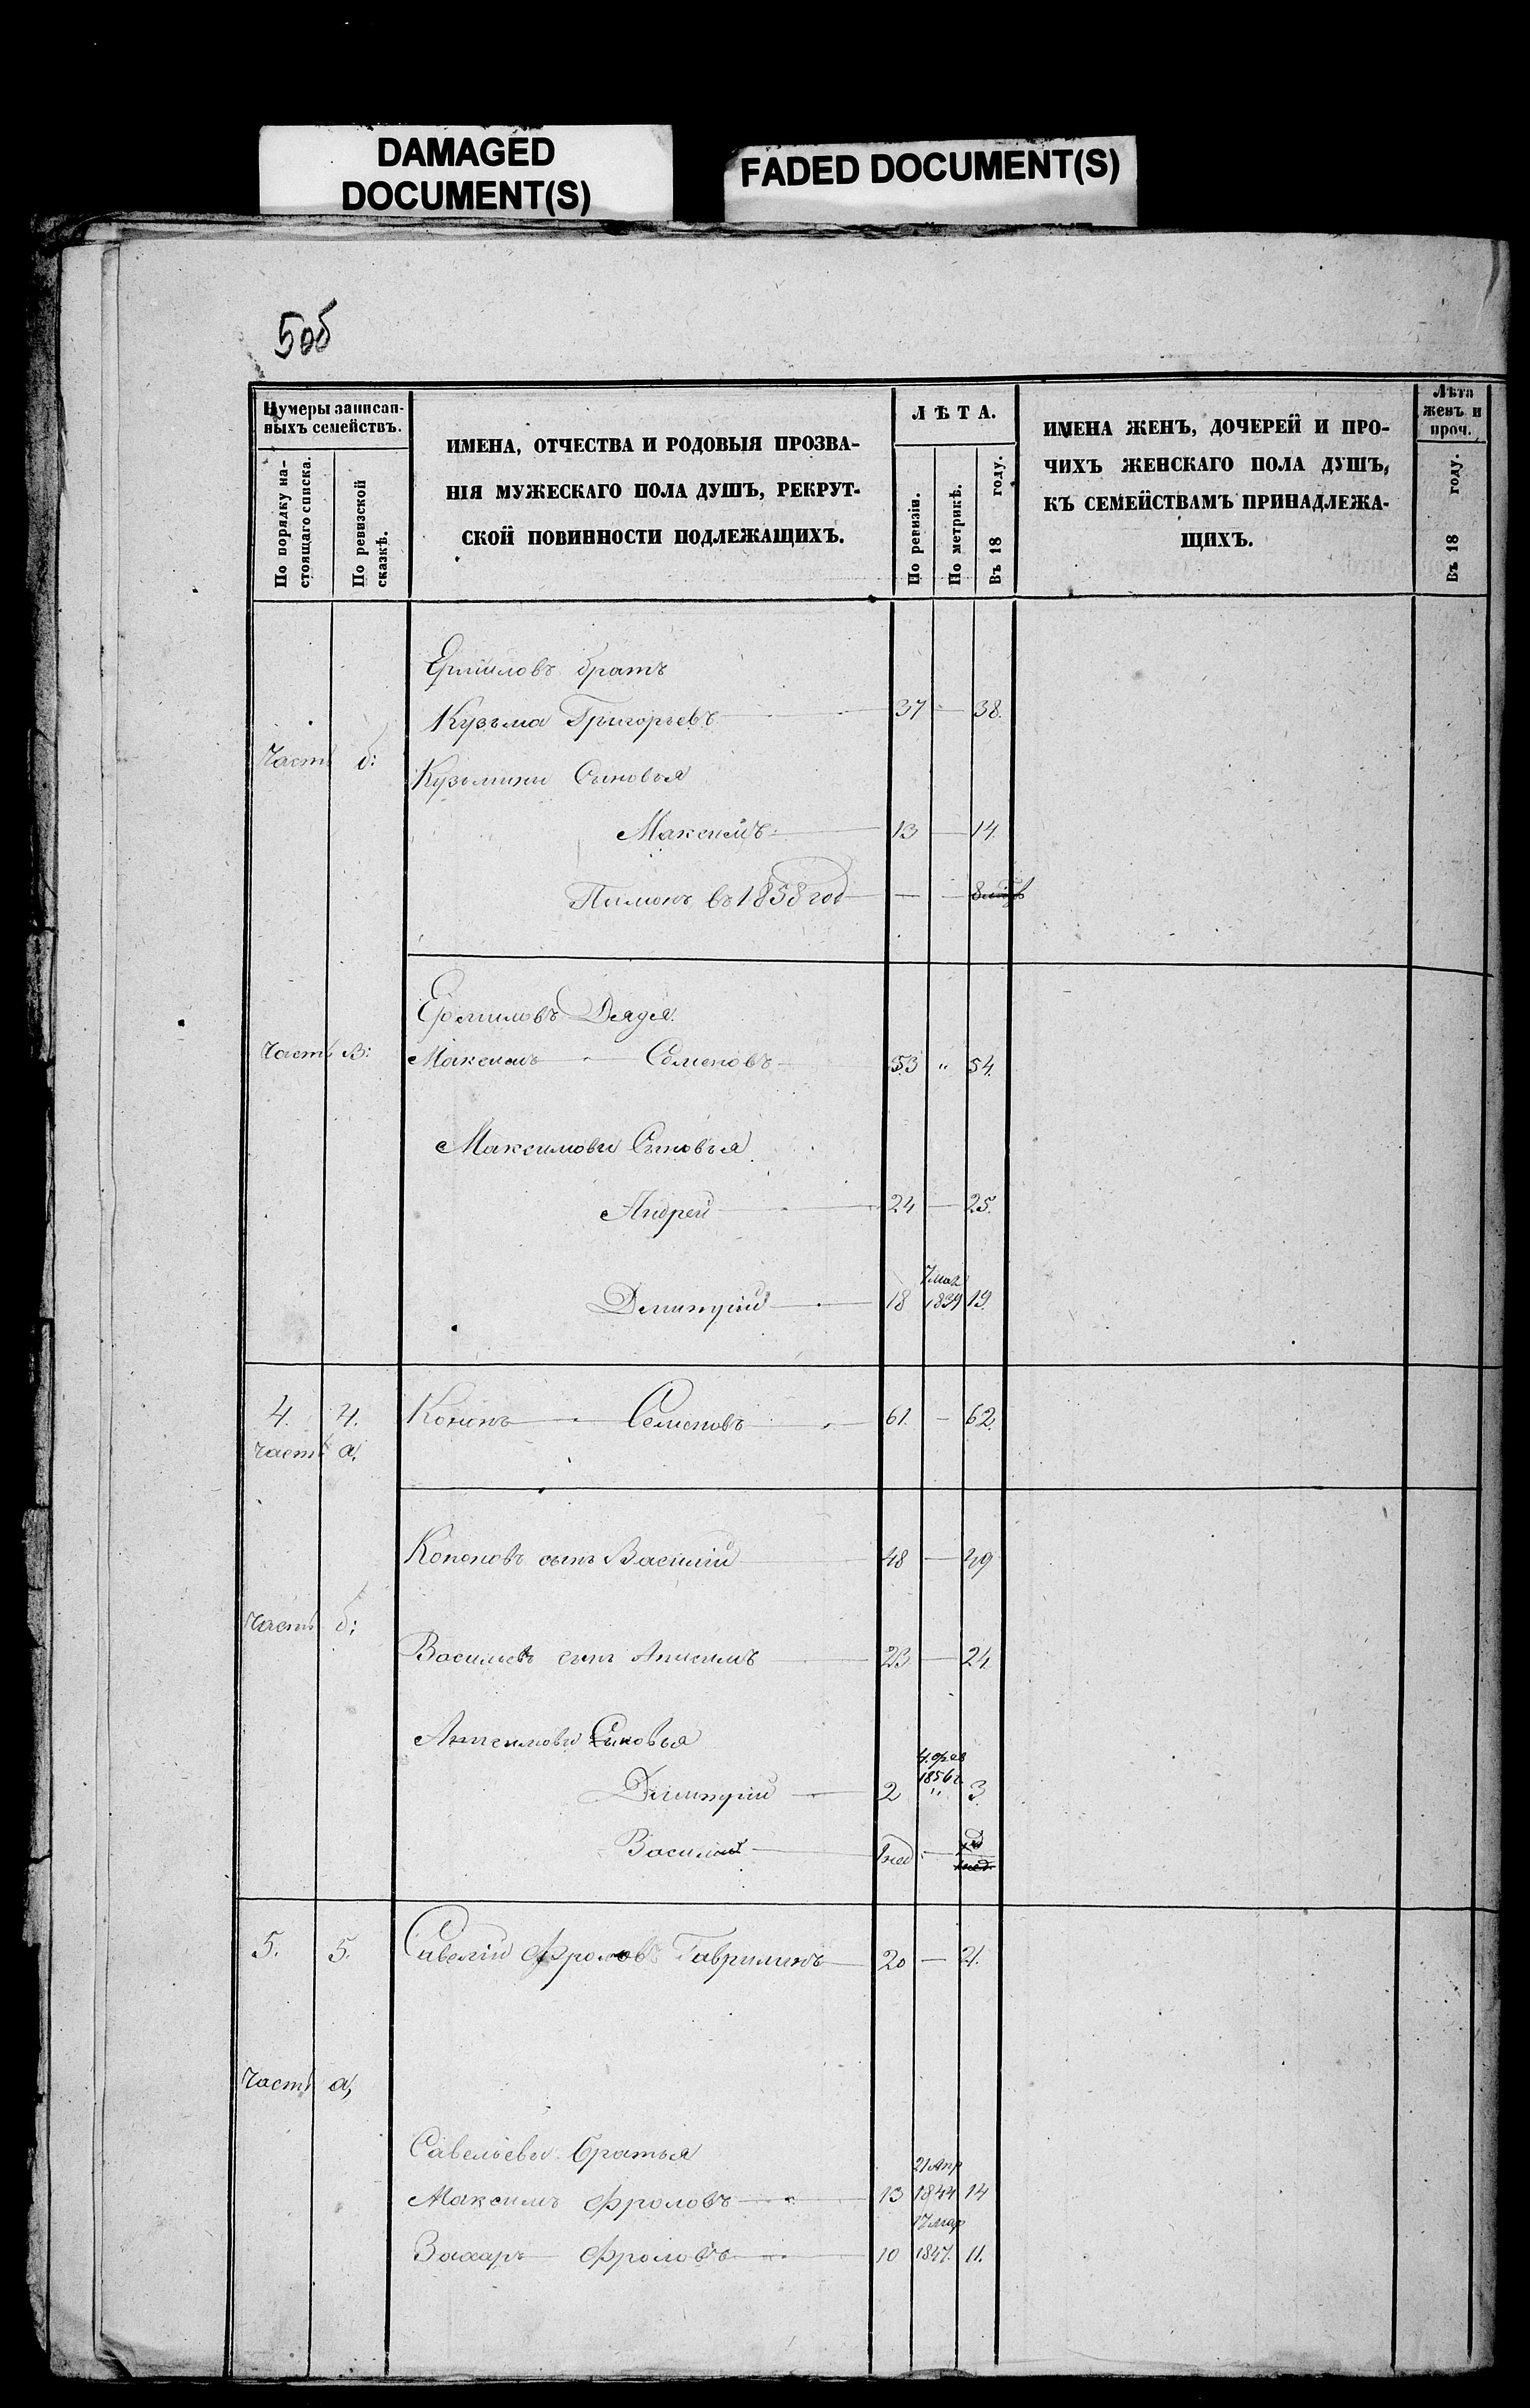 DAMAGED
DOCUMENT(S)
FADED DOCUMENT(S)
5об
Нумеры записан-
ныхъ семействъ.
По порядку на-
стоящаго списка.
По ревизской
сказкѣ.
ИМЕНА, ОТЧЕСТВА И РОДОВЫЯ ПРОЗВА-
НІЯ МУЖЕСКАГО ПОЛА ДУШЪ, РЕКРУТ-
СКОЙ ПОВИННОСТИ ПОДЛЕЖАЩИХЪ.
ЛѢТА.
По ревизіи.
По метрикѣ.
Въ 18 году.
ИМЕНА ЖЕНЪ, ДОЧЕРЕЙ И ПРО-
ЧИХЪ ЖЕНСКАГО ПОЛА ДУШЪ,
КЪ СЕМЕЙСТВАМЪ ПРИНАДЛЕЖА-
ЩИХЪ.
Лѣта
женъ и
проч.
Въ 18 году.
Ермиловъ братъ
Кузьма Григорьевъ — 37 — 38.
Часть б:
Кузьмины Сыновья
Максимъ — 13 — 14.
Пименъ въ 1858 год — — —
Ермиловъ Дядя.
Часть в: Максимъ — Семеновъ — 53 " 54.
Максимовы Сыновья
Андрей — 24 — 25.
7 мая
Димитрій — 18 1839 19.
4. 4. Кононъ — Семеновъ — 61. — 62.
часть а,
Кононовъ сынъ Василій 48 — 49
Часть б;
Васильевъ сынъ Анисимъ — 23 — 24
Анисимовы Сыновья
4. фев
1856 г.
Димитрій — 2 " 3.
Василій — 1 нед. —
5. 5. Савелій Фроловъ Гаврилинъ — 20 — 21.
Часть а,
Савельевы братья
21 Апр
Максимъ Фроловъ — 13 1844 14
17 мар
Захаръ — Фроловъ — 10 1847. 11.